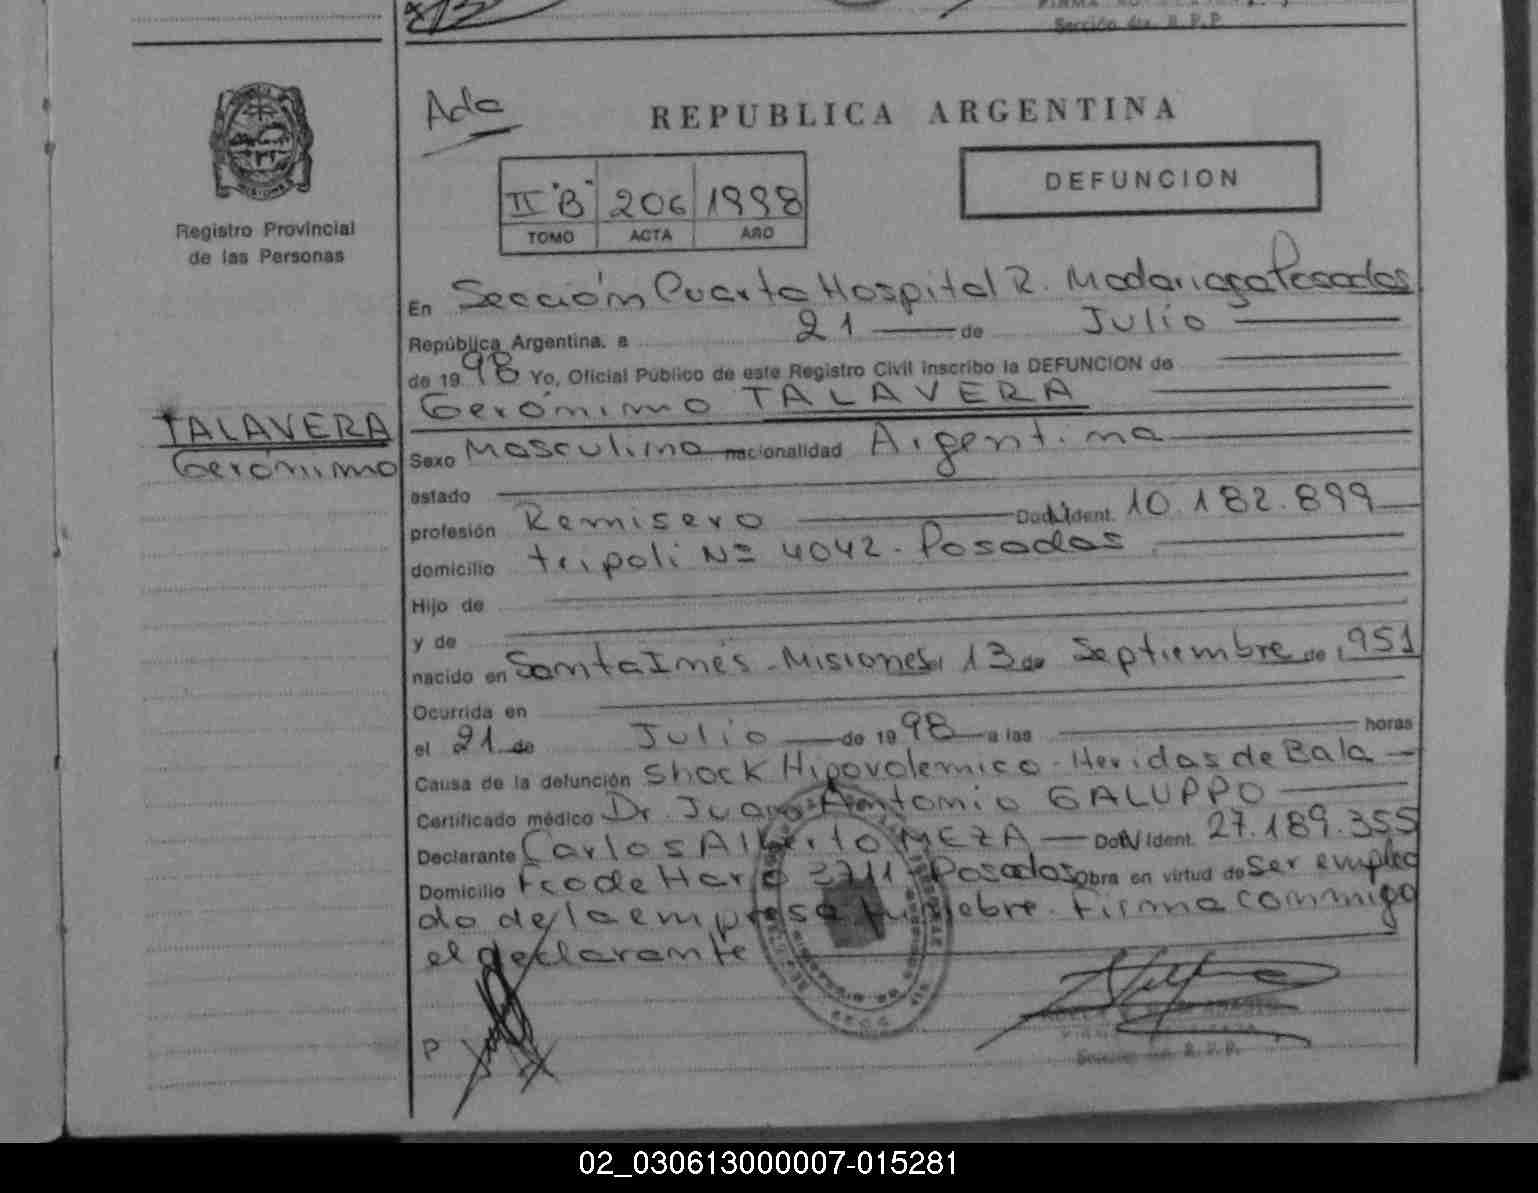 Sección 4ta. R.P.P.
Ada
REPUBLICA ARGENTINA
II "B" 206 1998
TOMO ACTA AÑO
DEFUNCION
Registro Provincial
de las Personas
En Sección Cuarta Hospital R. Madariaga Posadas
República Argentina, a 21 de Julio
de 1998 Yo, Oficial Público de este Registro Civil inscribo la DEFUNCION de
Gerónimo TALAVERA
TALAVERA
Gerónimo
Sexo Masculino nacionalidad Argentina
estado
profesión Remisero Doc. Ident. 10.182.899
domicilio tripoli Nº 4042. Posadas
Hijo de
y de
nacido en Santa Inés - Misiones el 13 de Septiembre de 1951
Ocurrida en
el 21 de Julio de 1998 a las horas
Causa de la defunción Shock Hipovolemico - Heridas de Bala
Certificado médico Dr. Juan Antonio GALUPPO
Declarante Carlos Alberto MEZA Doc. Ident. 27.189.355
Domicilio Fco de Haro 3711 Posadas obra en virtud de Ser emplea
do de la empresa fúnebre. Firma conmigo
el declarante
P
Sección 4ta. R.P.P.
02_030613000007-015281